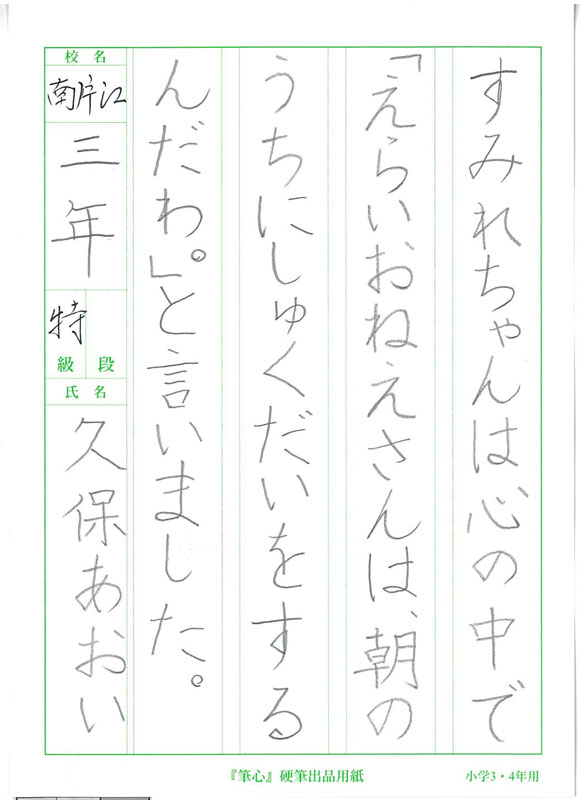 すみれちゃんは心の中で
「えらいおねえさんは、朝の
うちにしゅくだいをする
んだわ。」と言いました。
校名
南片江
三年
特
級 段
氏名
久保あおい
『筆心』硬筆出品用紙
小学3・4年用